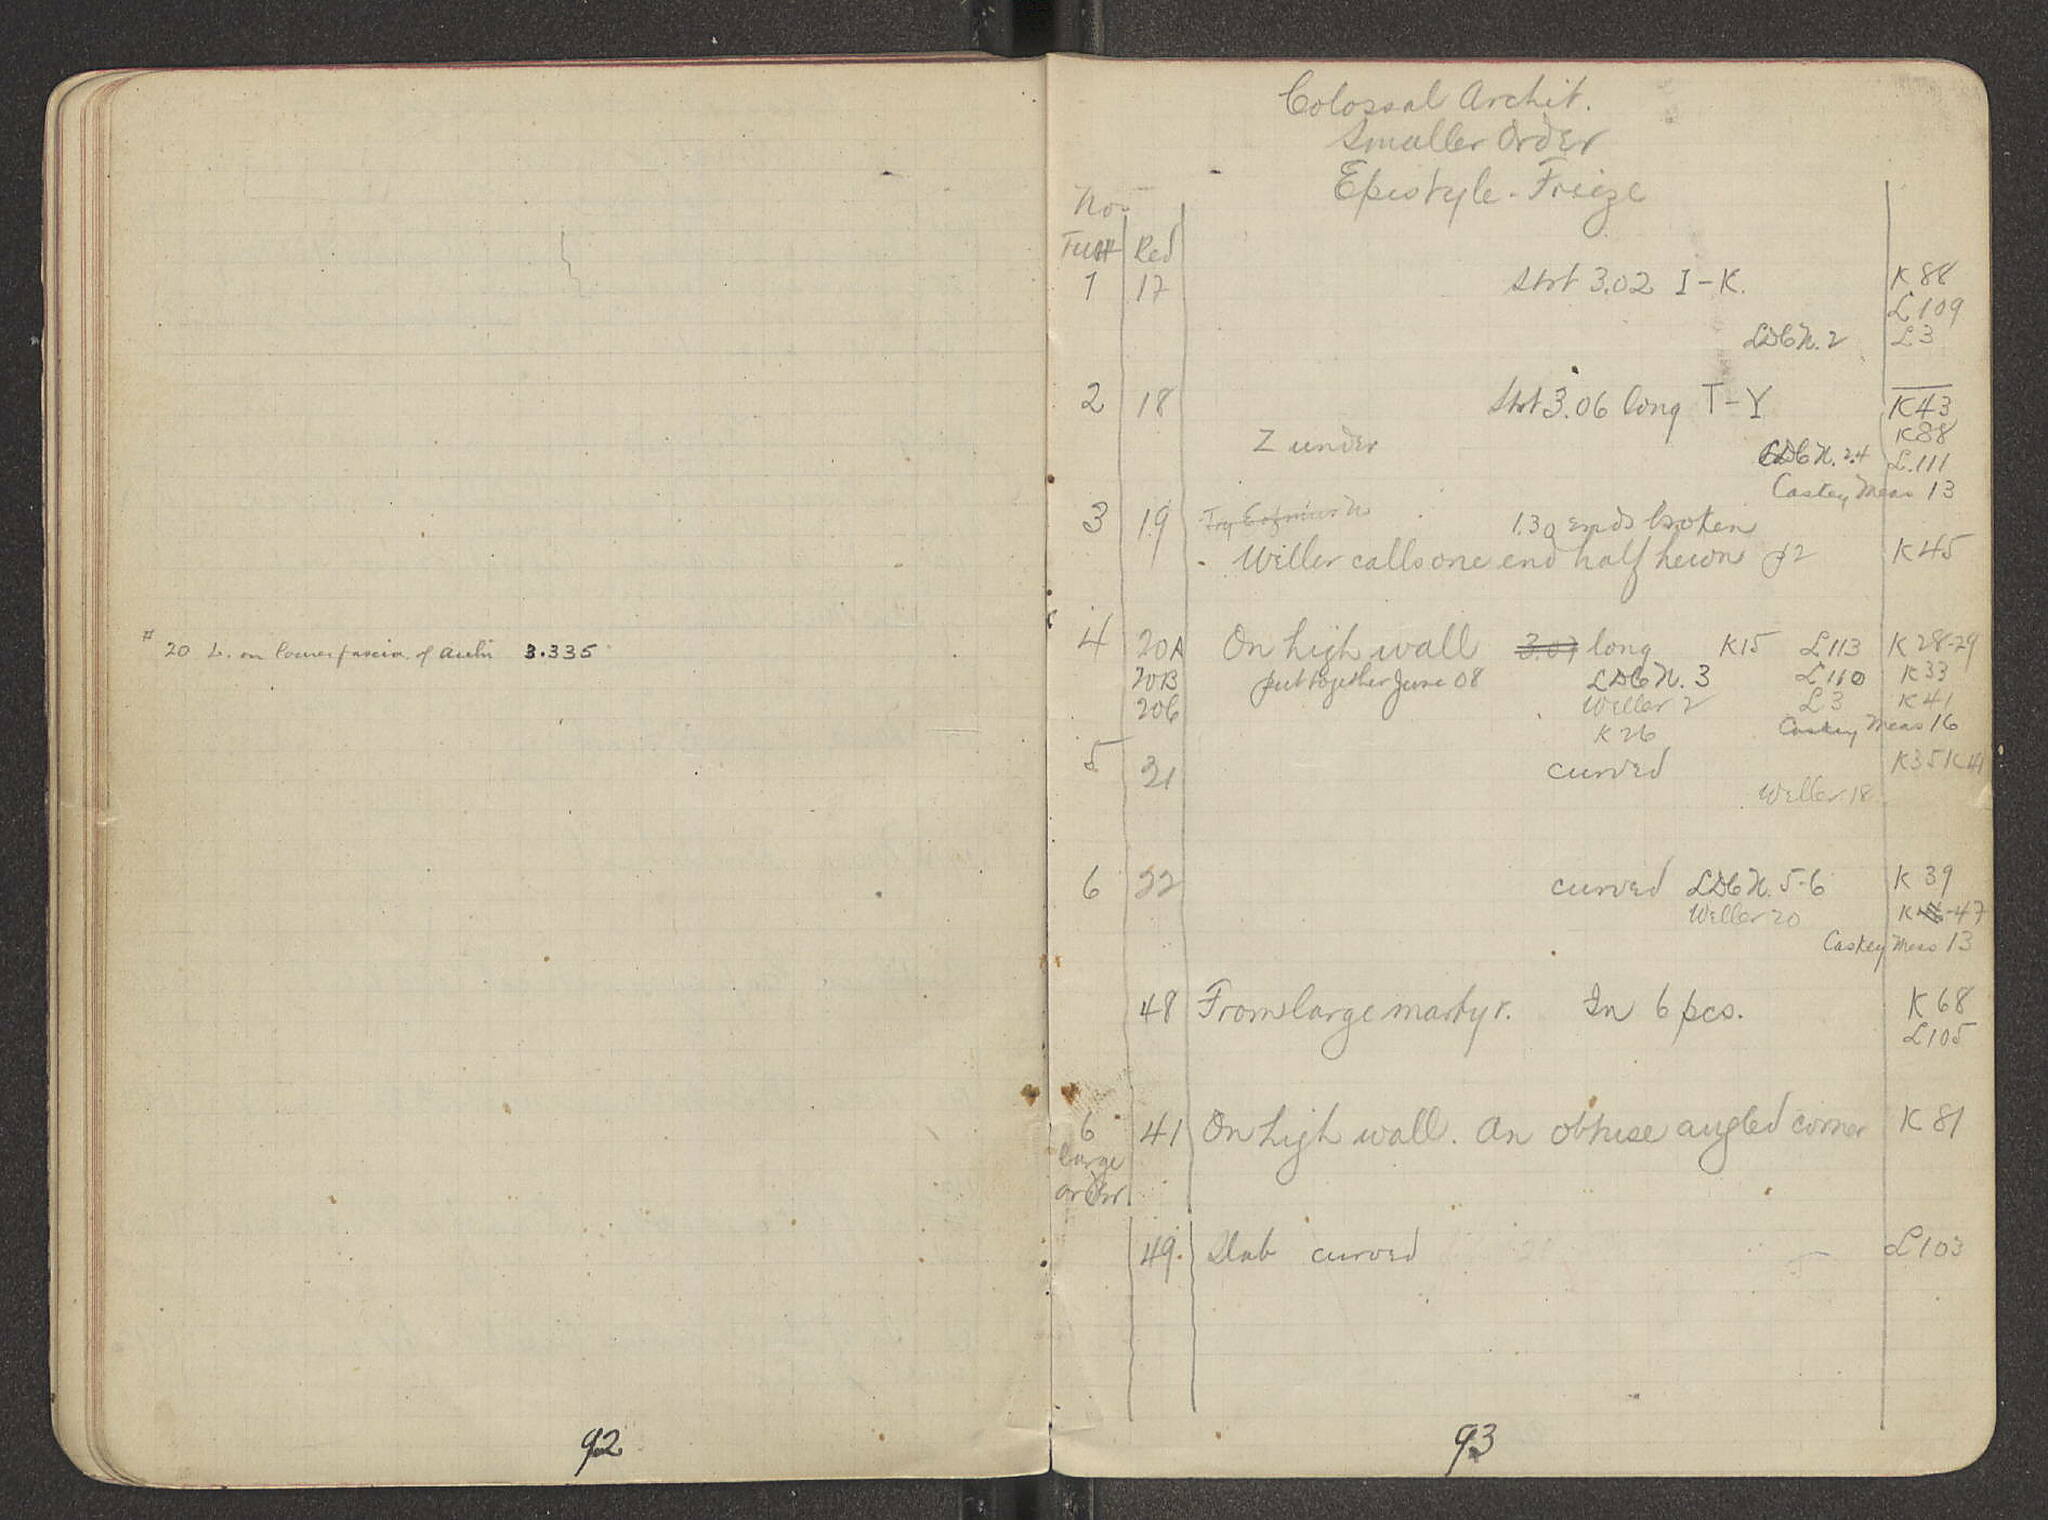 # 20 L. on lower fascia of Archi 3.335
92
Colossal Archit.
Smaller Order
Epistyle-Frieze
No.
Red
1 17 Strt 3.02 I-K. K 88
L 109
LDC N. 2 L 3
2 18 Strt 3.06 long T-Y K 43
Z under K 88
LDC N. 2.4 L. 111
Caskey Meas 13
3 19 1.30 ends broken
Weller calls one end half hewn p2 K 45
4 20A On high wall 3.07 long K15 L113 K 28-29
20B put together June 08 LDC N. 3 L 110 K 33
20C Weller 2 L 3 K 41
K 26 Caskey Meas 16
5 21 curved K35 K41
Weller 18
6 22 curved LDC N. 5-6 K 39
Weller 20 -47
Caskey Meas 13
48 From large martyr. In 6 pcs. K 68
L 105
6 41 On high wall. An obtuse angled corner K 81
large
order
49. Slab curved L 103
93